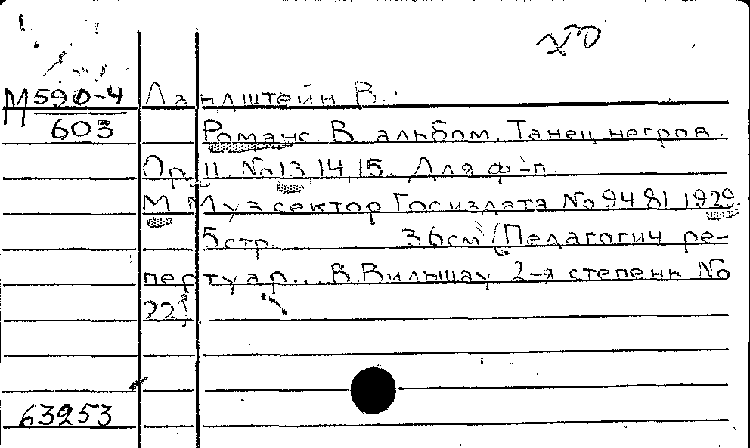 М 590-4
603
В.
Романс. В альбом. Танец негров.
Op. 11. No 13, 14, 15. Для ф-п.
М. Муз сектор Госиздата No 9481 1929.
5 стр. 36 см (Педагогич ре-
пертуар... В. Вильшау 2-я степень No
22)
63253